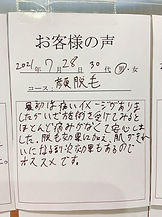 お客様の声
2021年7月28日 30代 男・女
コース: 顔脱毛
最初は痛いイメージがありま
したがいざ施術を受けてみると
ほとんど痛みがなくて安心しま
した。脱毛効果に加え、肌がきれ
いになる美肌効果もあるので
オススメです。